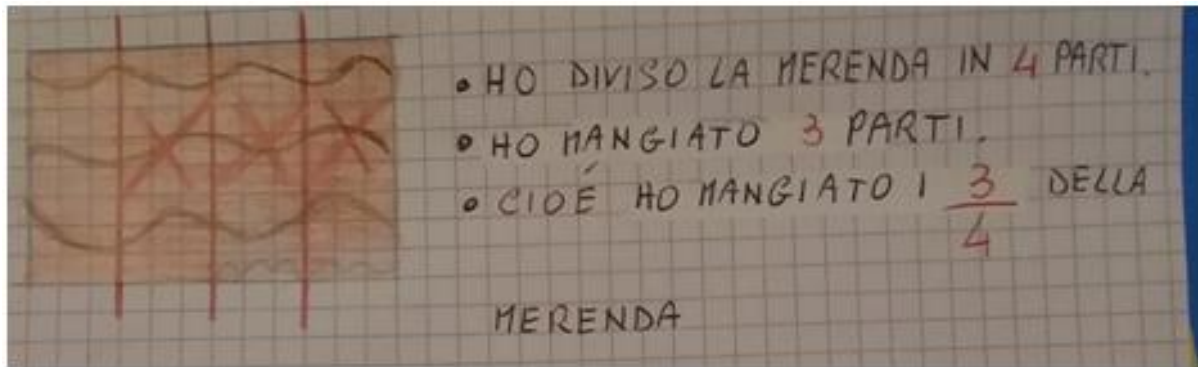 • HO DIVISO LA MERENDA IN 4 PARTI.
• HO MANGIATO 3 PARTI.
• CIOÉ HO MANGIATO I 3/4 DELLA
MERENDA